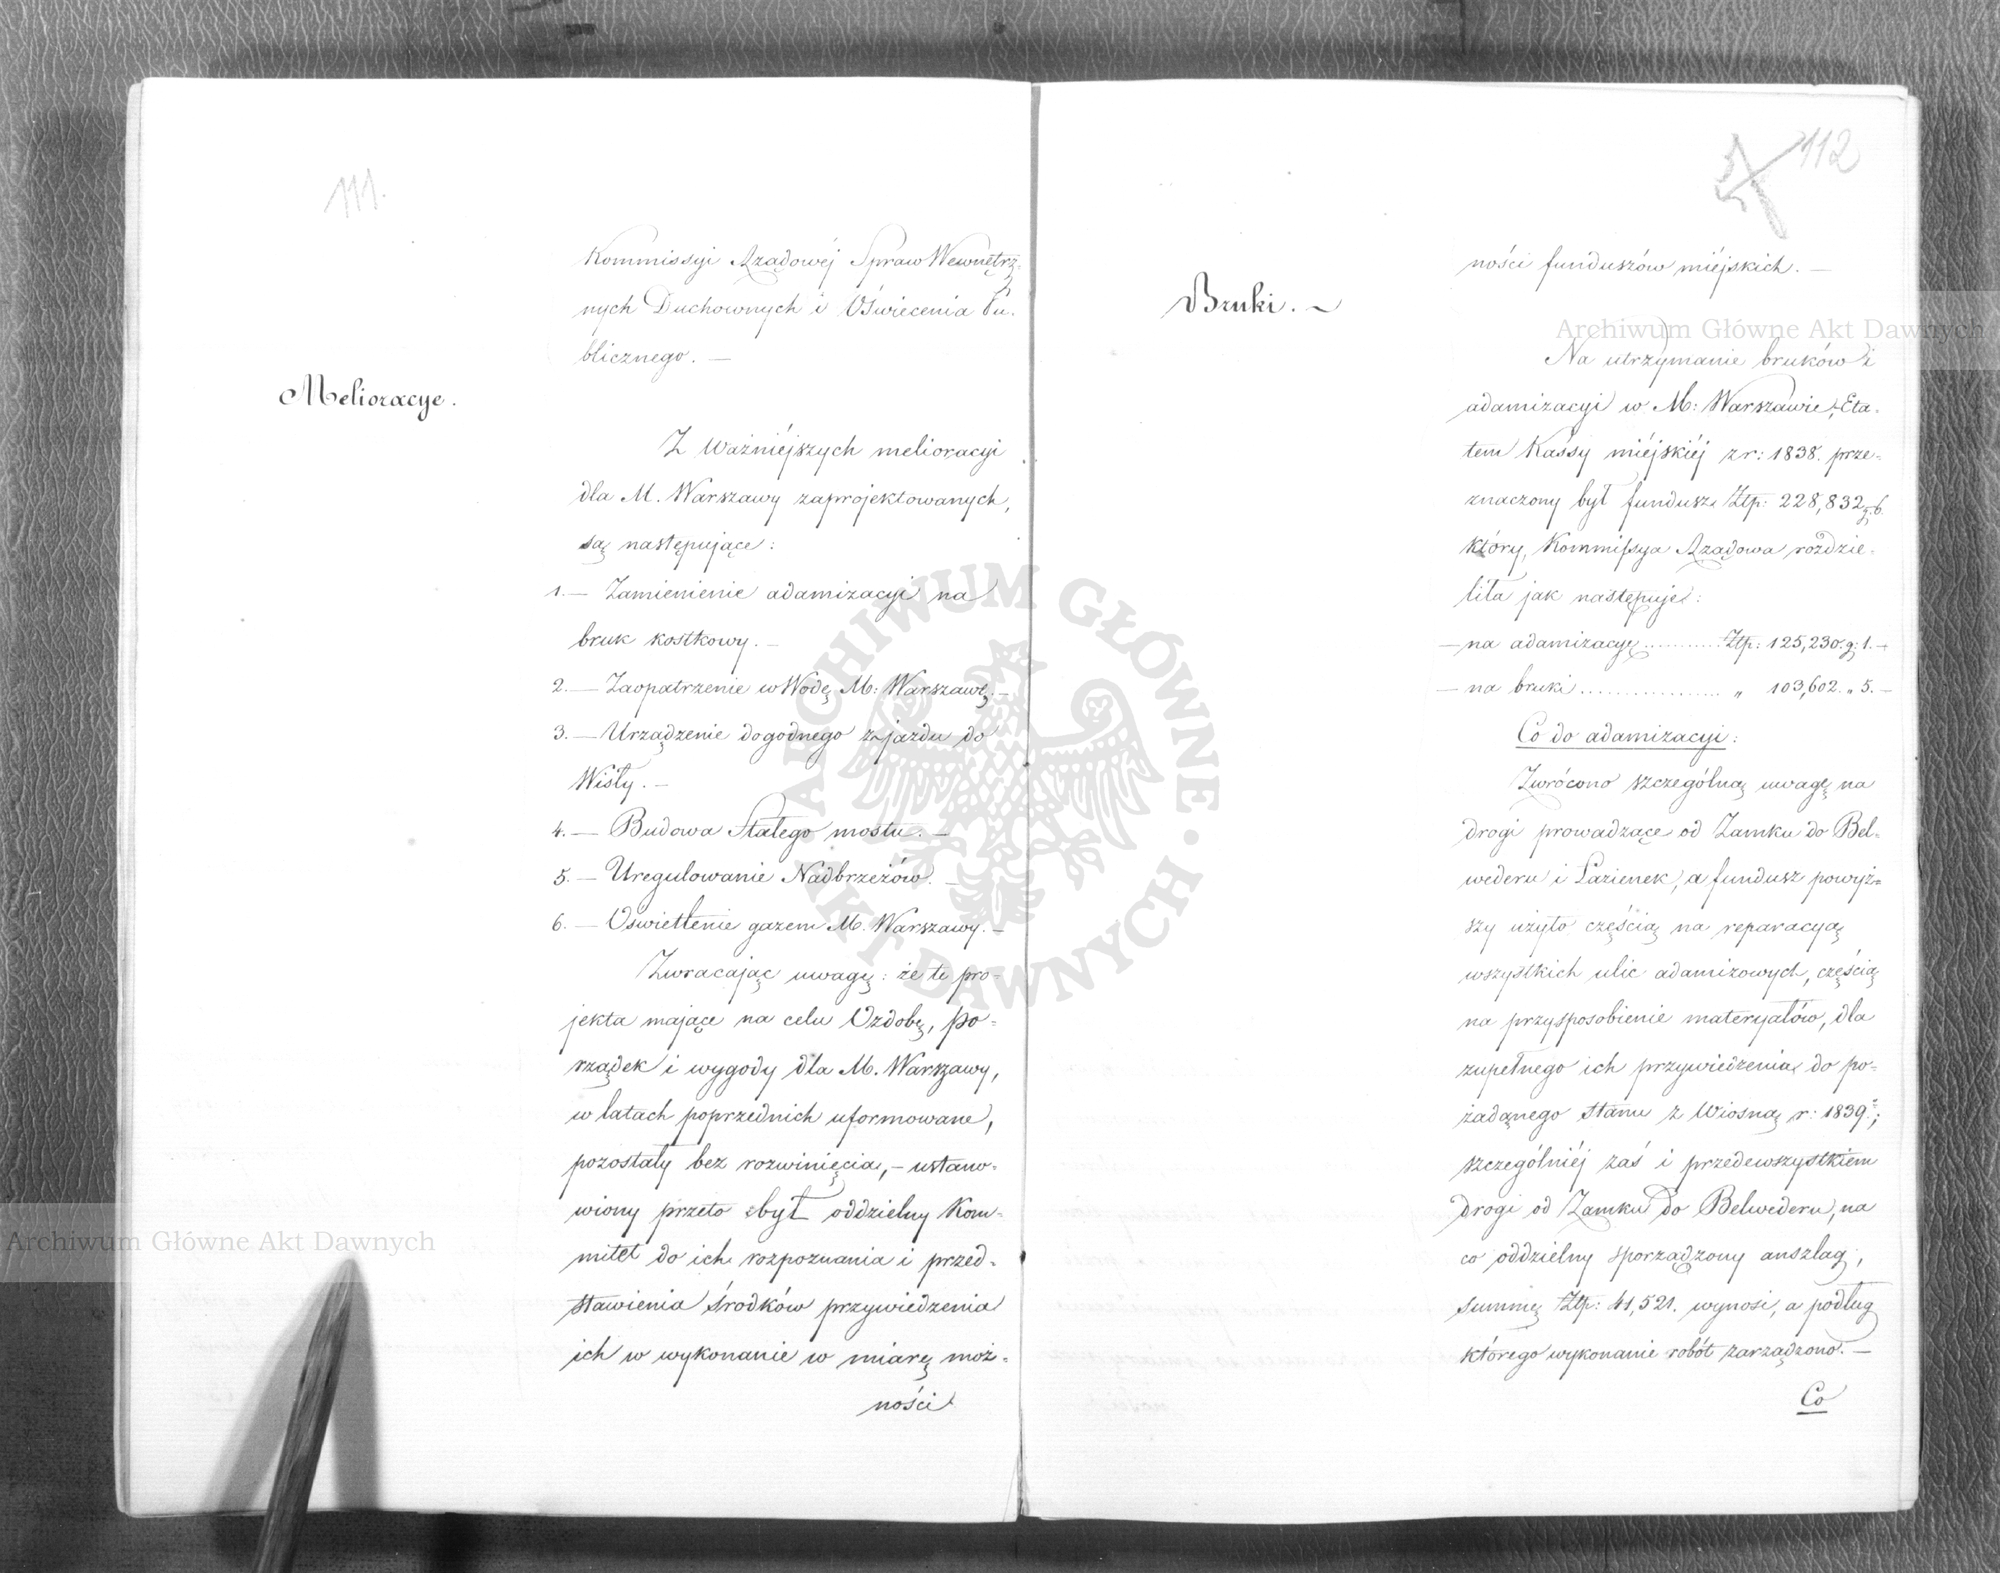 111.
Kommissyi Rządowéj Spraw Wewnętrz-
nych Duchownych i Oświecenia Pu-
blicznego. —
Melioracye.
Z ważniéjszych melioracyi
dla M. Warszawy zaprojektowanych,
są następujące:
1. — Zamienienie adamizacyi na
bruk kostkowy. —
2. — Zaopatrzenie w Wodę M: Warszawę. —
3. — Urządzenie dogodnego zjazdu do
Wisły. —
4. — Budowa Stałego mostu. —
5. — Uregulowanie Nadbrzeżów. —
6. — Oświetlenie gazem M. Warszawy. —
Zwracając uwagę: że te pro-
jekta mające na celu Ozdobę, po-
rządek i wygody dla M. Warszawy,
w latach poprzednich uformowane,
pozostały bez rozwinięcia, — ustano-
wiony przeto był oddzielny Kom-
mitet do ich rozpoznania i przed-
stawienia środków przywiedzenia
ich w wykonanie w miarę moż-
ności
112
ności funduszów miéjskich. —
Bruki. ~
Na utrzymanie bruków i
adamizacyi w M: Warszawie, Eta-
tem Kassy miéjskiéj z r: 1838. prze-
znaczony był fundusz Złp: 228,832 g. 6.
który, Kommissya Rządowa rozdzie-
liła jak następuje:
— na adamizacyę .......... Złp: 125,230. g: 1. —
— na bruki .................. „ 103,602. „ 5. —
Co do adamizacyi:
Zwrócono szczególną uwagę na
drogi prowadzące od Zamku do Bel-
wederu i Łazienek, a fundusz powyż-
szy użyto częścią na reparacyą
wszystkich ulic adamizowych, częścią
na przysposobienie materyałów, dla
zupełnego ich przywiedzenia do po-
żądanego stanu z Wiosną r: 1839.;
szczególniéj zaś i przedewszystkiem
drogi od Zamku do Belwederu, na
co oddzielny sporządzony anszlag,
summę Złp: 41,521. wynosi, a podług
którego wykonanie robót zarządzono. —
Co
Archiwum Główne Akt Dawnych
Archiwum Główne Akt Dawnych
ARCHIWUM GŁÓWNE · AKT DAWNYCH ·